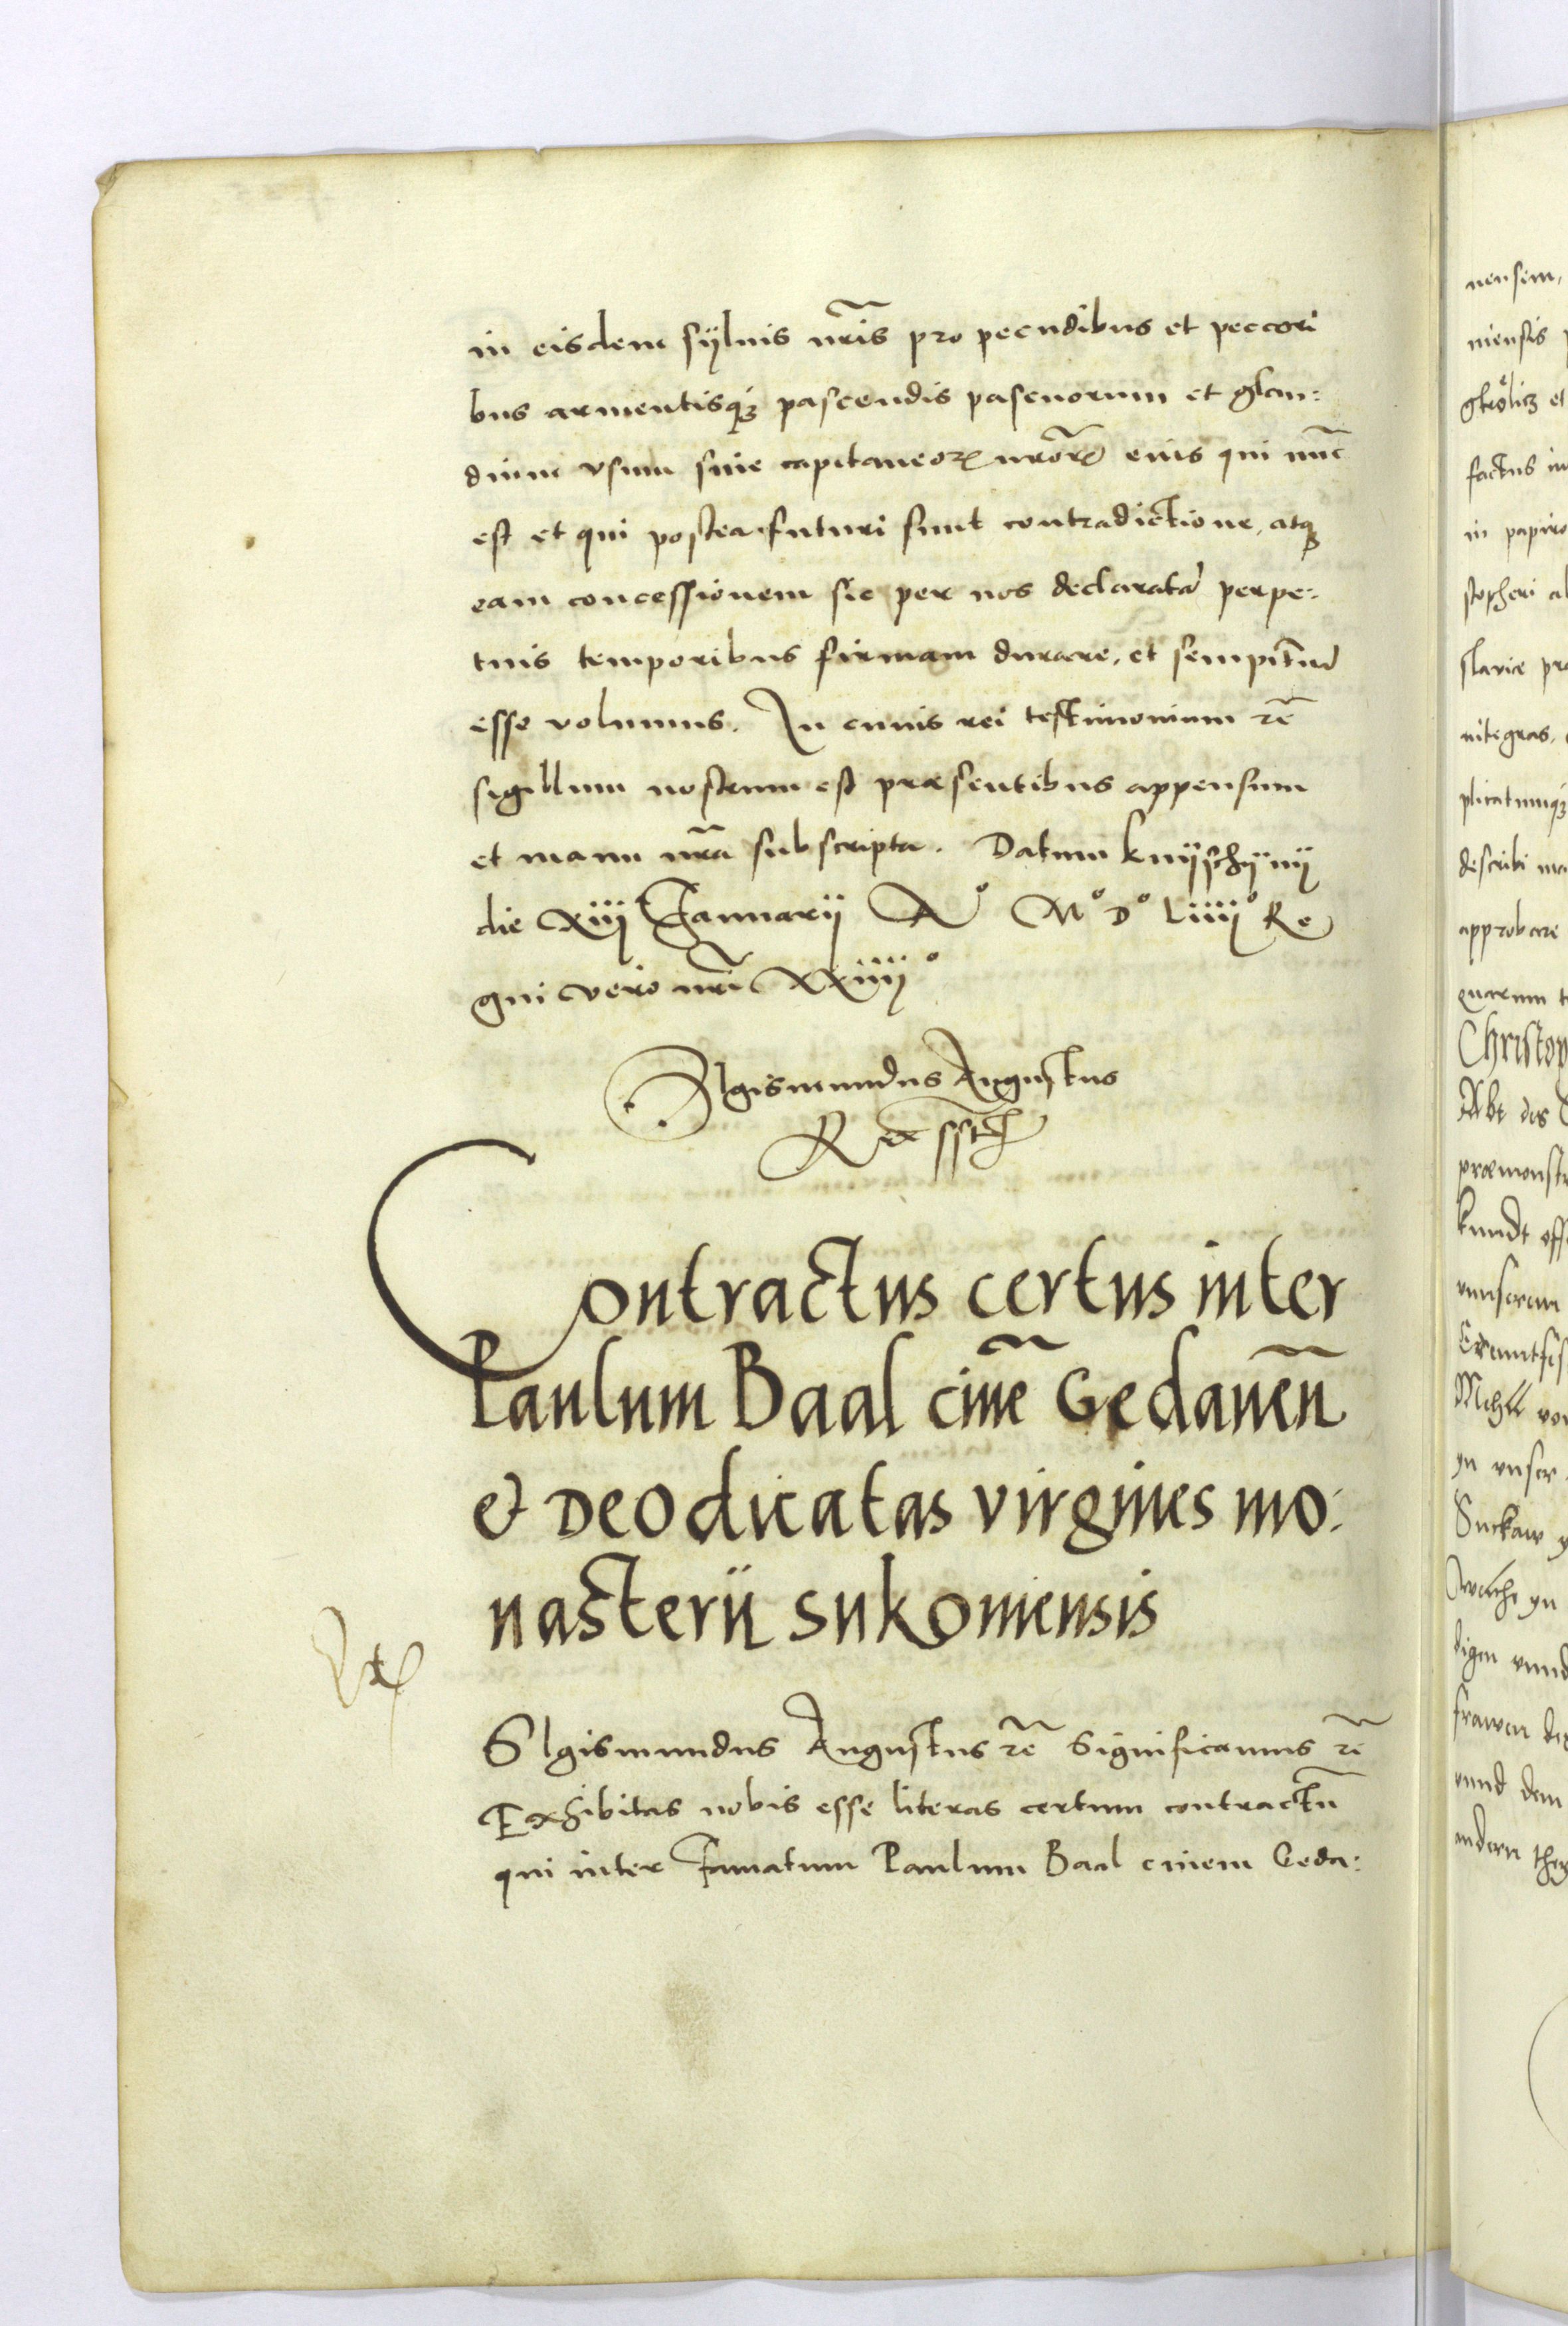 in eisdem sÿluis nr̃is pro pecudibus et peccori
bus armentisq₃ pascendis pascuorum et glan:
dium vsum siue capitaneorꝫ nr̃orꝫ eius qui nũc
est et qui postea futuri sunt contradictione, atq₃
eam concessionem sic per nos declaratã perpe:
tuis temporibus firmam durare, et sempit̃nã
esse volumus. In cuius rei testimonium rẽ
sigillum nostrum est præsentibus appensum
et manu nr̃a subscripta. Datum knÿschÿnÿ
die xiij Januarij Aº Mº Dº Liiijº Re
gni vero nr̃i xxiiijº
SIgismundus Augustus
Rex sst
Contractus certus inter
Paulum Baal ciuẽ Gedaneñ
& Deo dicatas virgines mo:
nasterij sukouiensis
SIgismundus Augustus rẽ Significamus rẽ
Exhibitas nobis esse literas certum contractũ
qui inter famatum Paulum Baal ciuem Geda:
nensem,
niensis
factus in
in papiro
stopheri
slauice
integras,
plicatumq₃
describi
approbare
quarum
Christop
Abt des
præmonst
kundt
vnnserem
yn vnser
Suckaw
vnnd
frawen
vnnd dem
andern